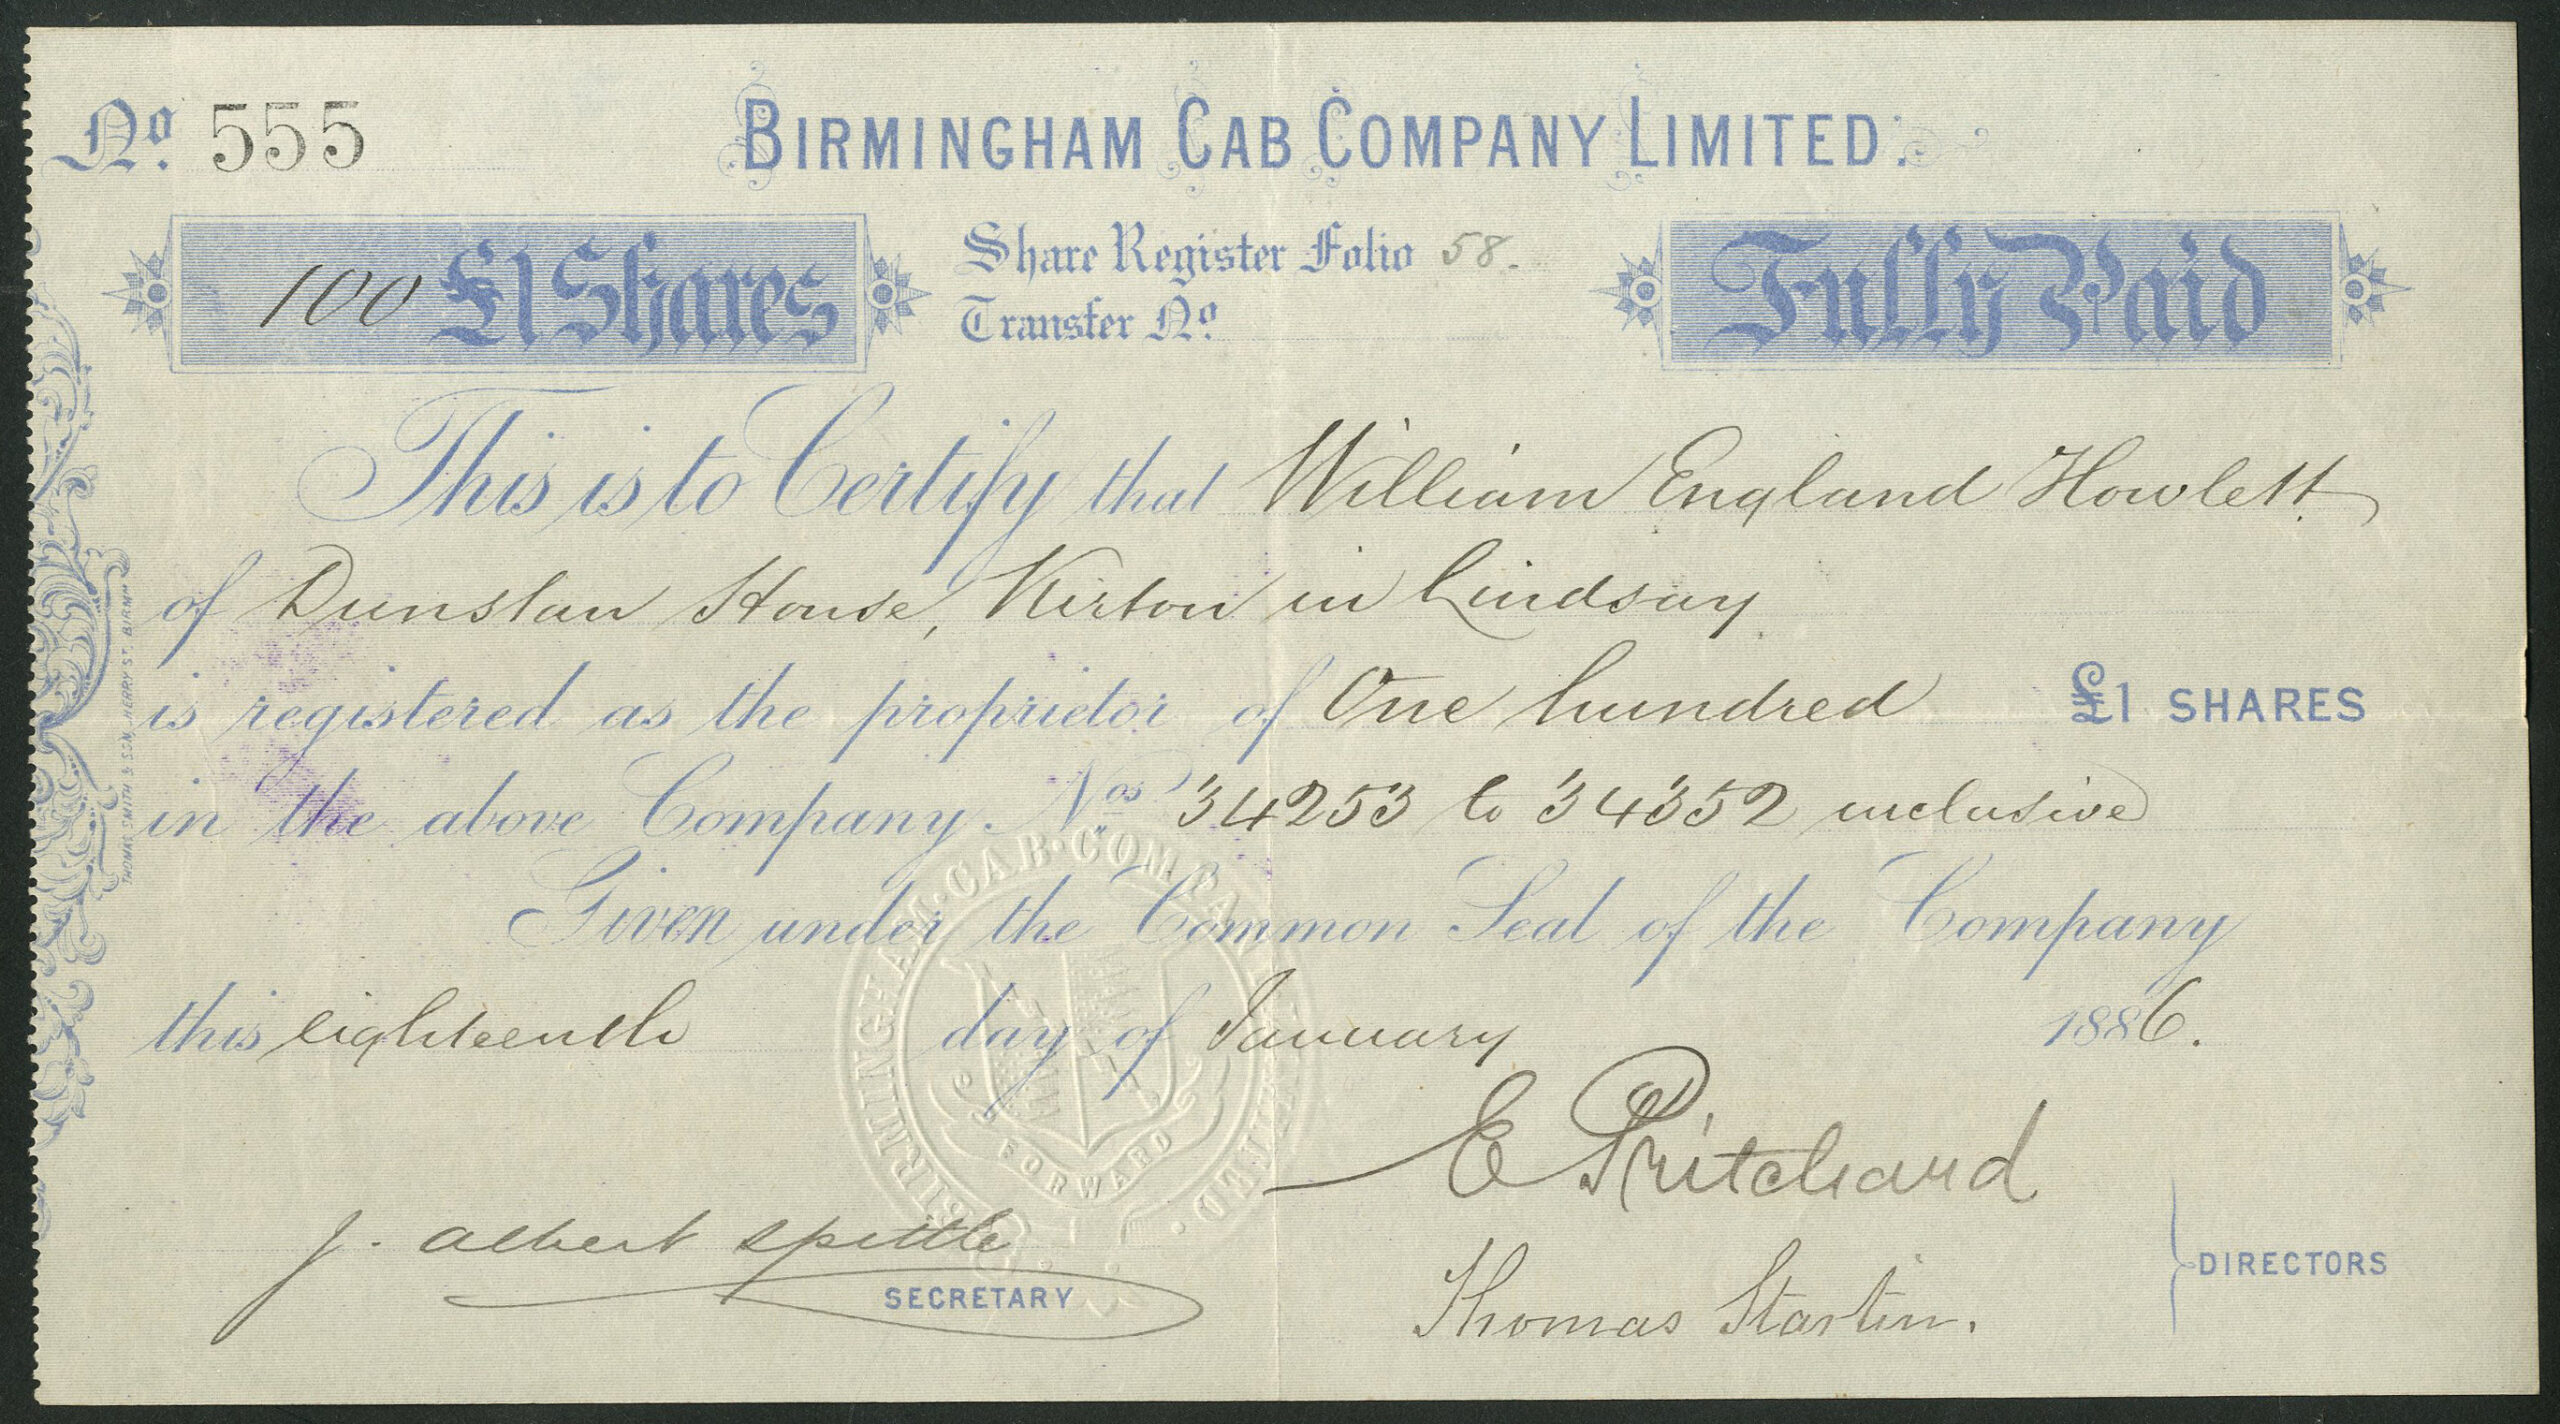 No. 555
BIRMINGHAM CAB COMPANY LIMITED.
100 £1 Shares
Share Register Folio 58.
Transfer No.
Fully Paid
This is to Certify that William England Howlett
of Dunstan House, Kirton in Lindsay
is registered as the proprietor of One hundred £1 SHARES
in the above Company. Nos. 34253 to 34352 inclusive
Given under the Common Seal of the Company
this eighteenth day of January 1886.
E Pritchard
J. Albert Spittle
SECRETARY
Thomas Startin.
DIRECTORS
THOMAS SMITH & SON, HENRY ST. BIRMM
BIRMINGHAM · CAB · COMPANY LIMITED ·
FORWARD